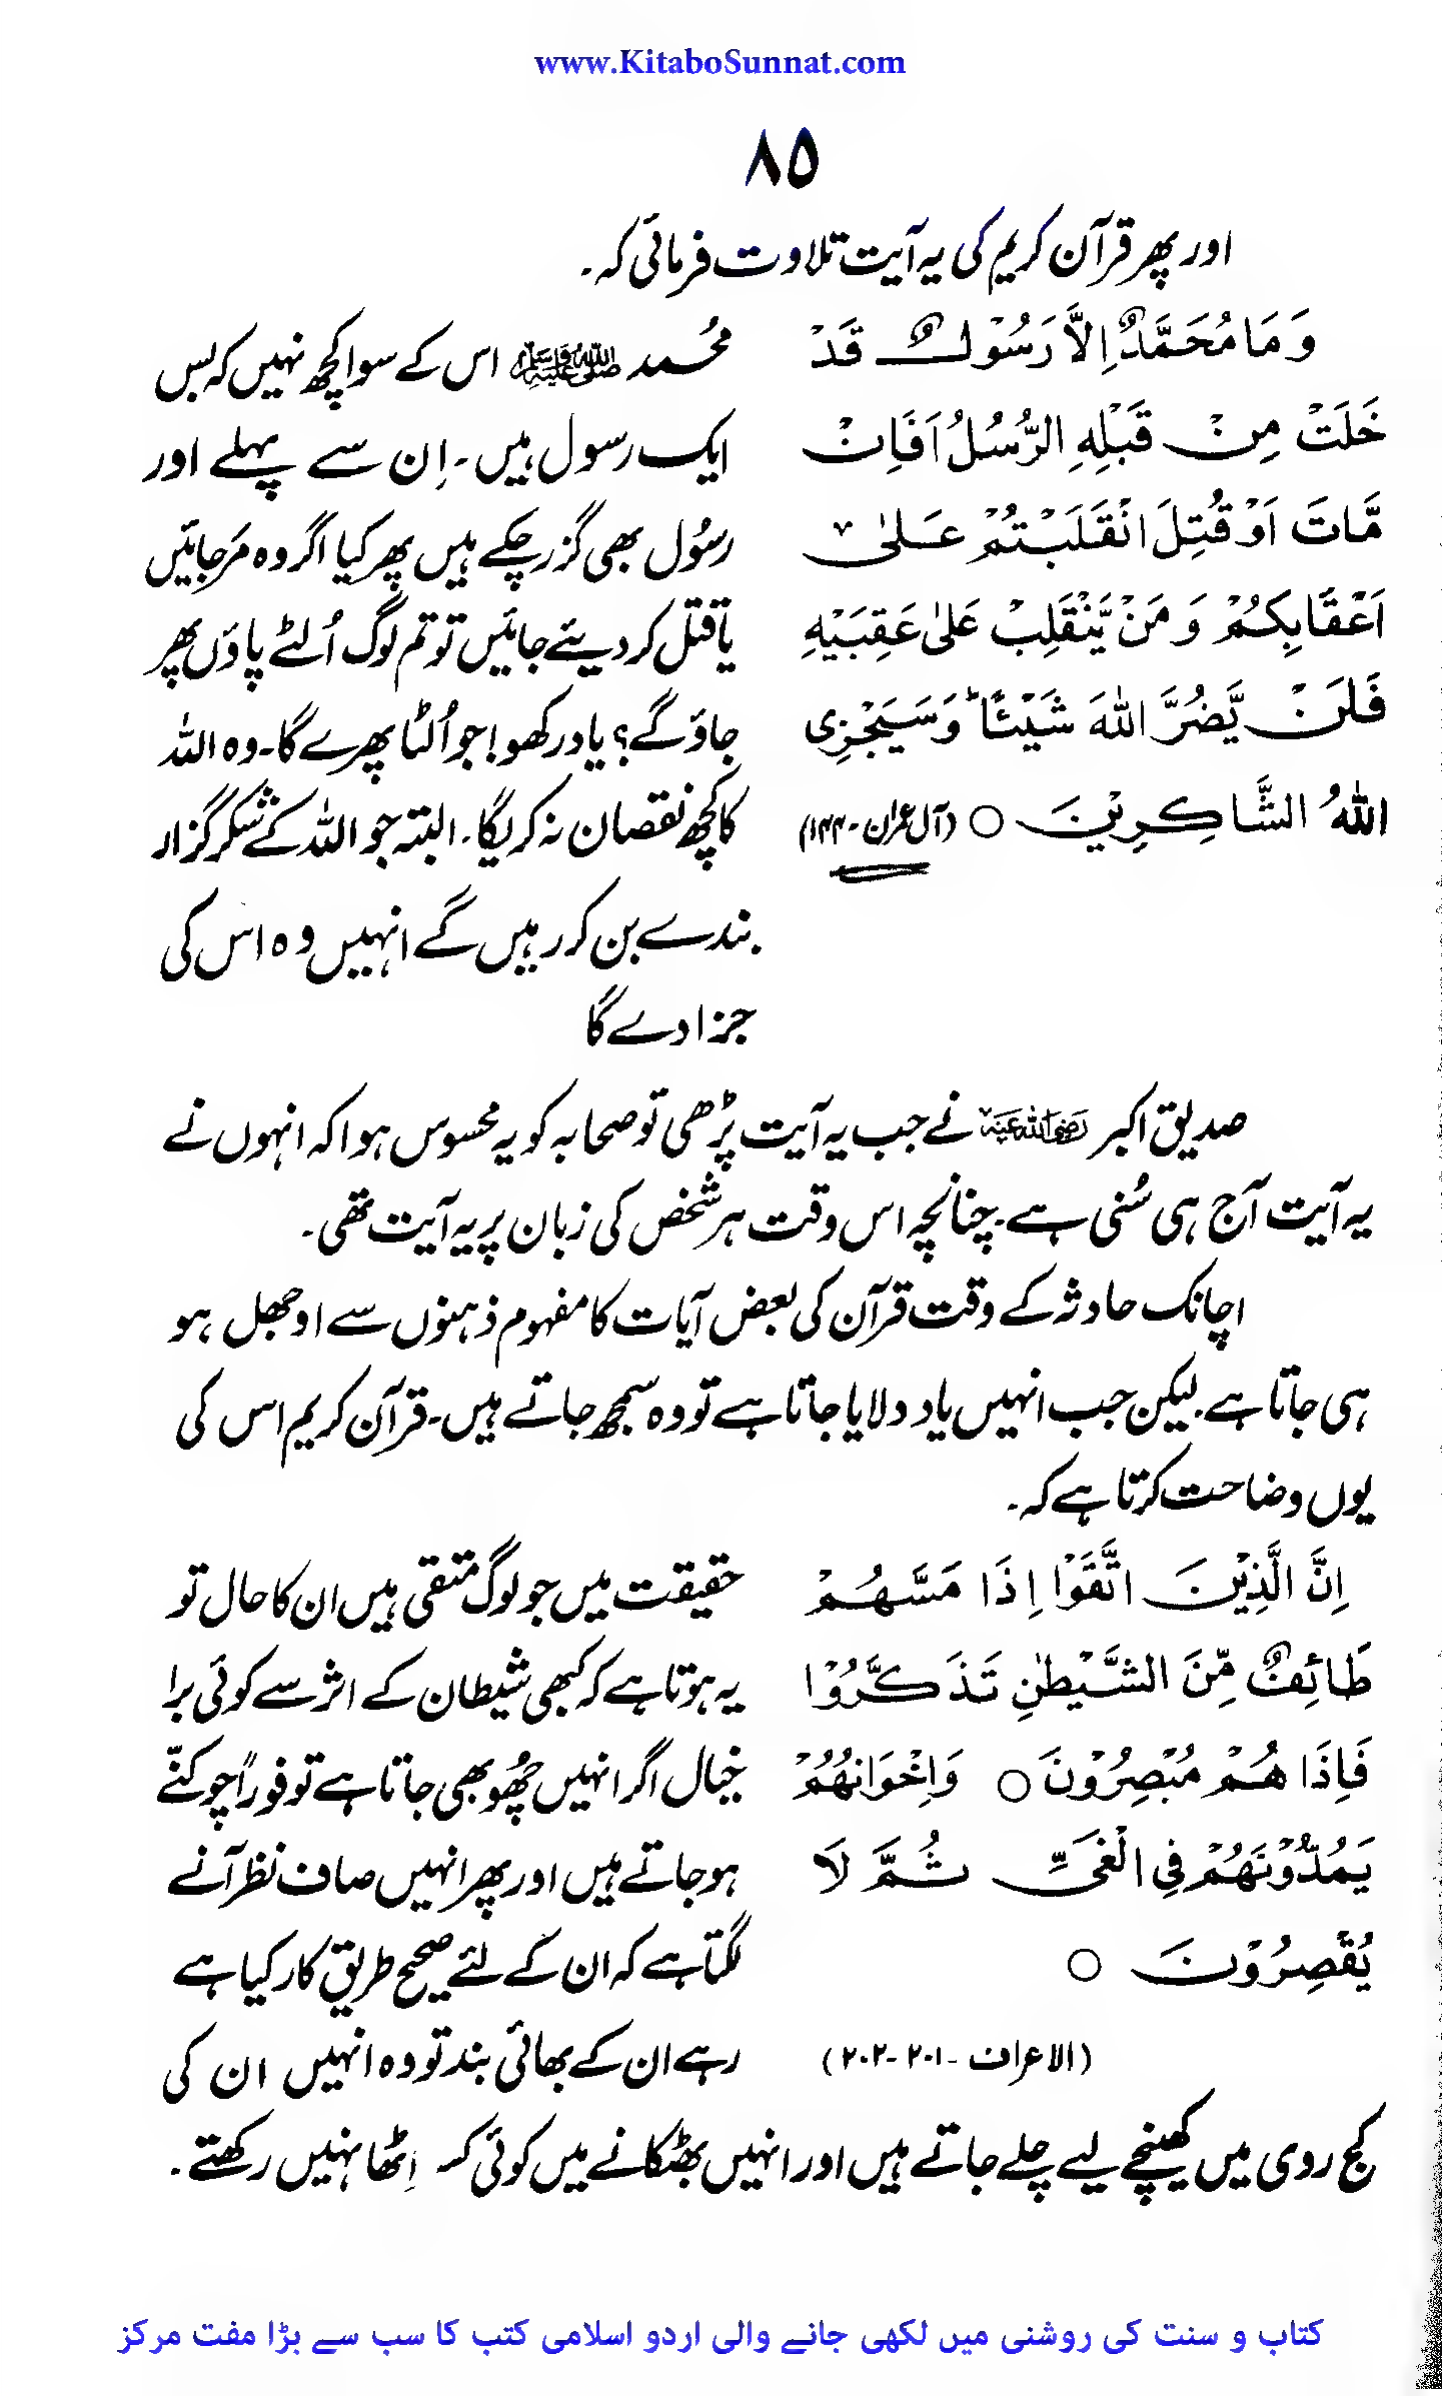 www.KitaboSunnat.com
۸۵
اور پھر قرآن کریم کی یہ آیت تلاوت فرمائی کہ۔
وَمَا مُحَمَّدٌ اِلَّا رَسُوْلٌ قَدْ
خَلَتْ مِنْ قَبْلِهِ الرُّسُلُ اَفَاِنْ
مَّاتَ اَوْ قُتِلَ انْقَلَبْتُمْ عَلٰی
اَعْقَابِكُمْ وَمَنْ يَّنْقَلِبْ عَلٰی عَقِبَيْهِ
فَلَنْ يَّضُرَّ اللهَ شَيْئًا ؕ وَسَيَجْزِی
اللهُ الشَّاكِرِيْنَ ○ (آل عمران - ۱۴۴)
محُمد ﷺ اس کے سوا کچھ نہیں کہ بس
ایک رسول ہیں۔ اِن سے پہلے اور
رسُول بھی گزر چکے ہیں پھر کیا اگر وہ مَرجائیں
یا قتل کر دیئے جائیں تو تم لوگ اُلٹے پاؤں پھر
جاؤ گے؟ یاد رکھو! جو اُلٹا پھرے گا۔ وہ اللہ
کا کچھ نقصان نہ کریگا۔ البتہ جو اللہ کے شکر گزار
بندے بن کر رہیں گے انہیں وہ اس کی
جزا دے گا
صدیق اکبر رضی اللہ عنہ نے جب یہ آیت پڑھی تو صحابہ کو یہ محسوس ہوا کہ انہوں نے
یہ آیت آج ہی سُنی ہے۔ چنانچہ اس وقت ہر شخص کی زبان پر یہ آیت تھی۔
اچانک حادثہ کے وقت قرآن کی بعض آیات کا مفہوم ذہنوں سے اوجھل ہو
ہی جاتا ہے۔ لیکن جب انہیں یاد دلایا جاتا ہے تو وہ سمجھ جاتے ہیں۔ قرآن کریم اس کی
یوں وضاحت کرتا ہے کہ۔
اِنَّ الَّذِيْنَ اتَّقَوْا اِذَا مَسَّهُمْ
طَائِفٌ مِّنَ الشَّيْطٰنِ تَذَكَّرُوْا
فَاِذَا هُمْ مُبْصِرُوْنَ ○ وَاِخْوَانُهُمْ
يَمُدُّوْنَهُمْ فِی الْغَیِّ ثُمَّ لَا
يُقْصِرُوْنَ ○
(الاعراف - ۲۰۱-۲۰۲)
حقیقت میں جو لوگ متقی ہیں ان کا حال تو
یہ ہوتا ہے کہ کبھی شیطان کے اثر سے کوئی برا
خیال اگر انہیں چھُو بھی جاتا ہے تو فوراً چوکنّے
ہو جاتے ہیں اور پھر انہیں صاف نظر آنے
لگتا ہے کہ ان کے لئے صحیح طریق کار کیا ہے
رہے ان کے بھائی بند تو وہ انہیں ان کی
کج روی میں کھینچے لیے چلے جاتے ہیں اور انہیں بھٹکانے میں کوئی کسر اٹھا نہیں رکھتے۔
کتاب و سنت کی روشنی میں لکھی جانے والی اردو اسلامی کتب کا سب سے بڑا مفت مرکز